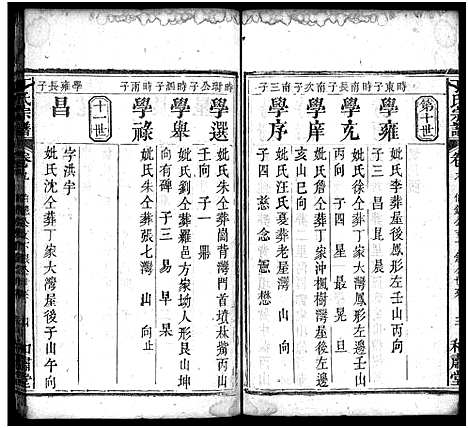 第十世
時東子
學雍
妣氏李葬屋後鳳形左壬山丙向
子三 昌 昆 晨
時南長子
學充
妣氏徐仝葬丁家大灣鳳形左壬山
丙向 子四 星 最 晃 旦
時南次子
學庠
妣氏詹仝葬丁家沖楓樹灣屋後
亥山巳向
時南三子
學序
妣氏汪氏夏葬老屋灣 山 向
子四 慈 念 懋
時澍公子
學選
妣氏朱仝葬崗背灣門首墳林紫丙山
壬向 子一 鼎
時泗子
學舉
妣氏劉仝葬羅邑方家坳人形艮山坤
向有碑 子三 易 早 杲
時雨子
學祿
妣氏朱仝葬張七灣 山 向
止
十一世
學雍長子
昌
字洪宇
妣氏沈仝葬丁家大灣屋後子山午向